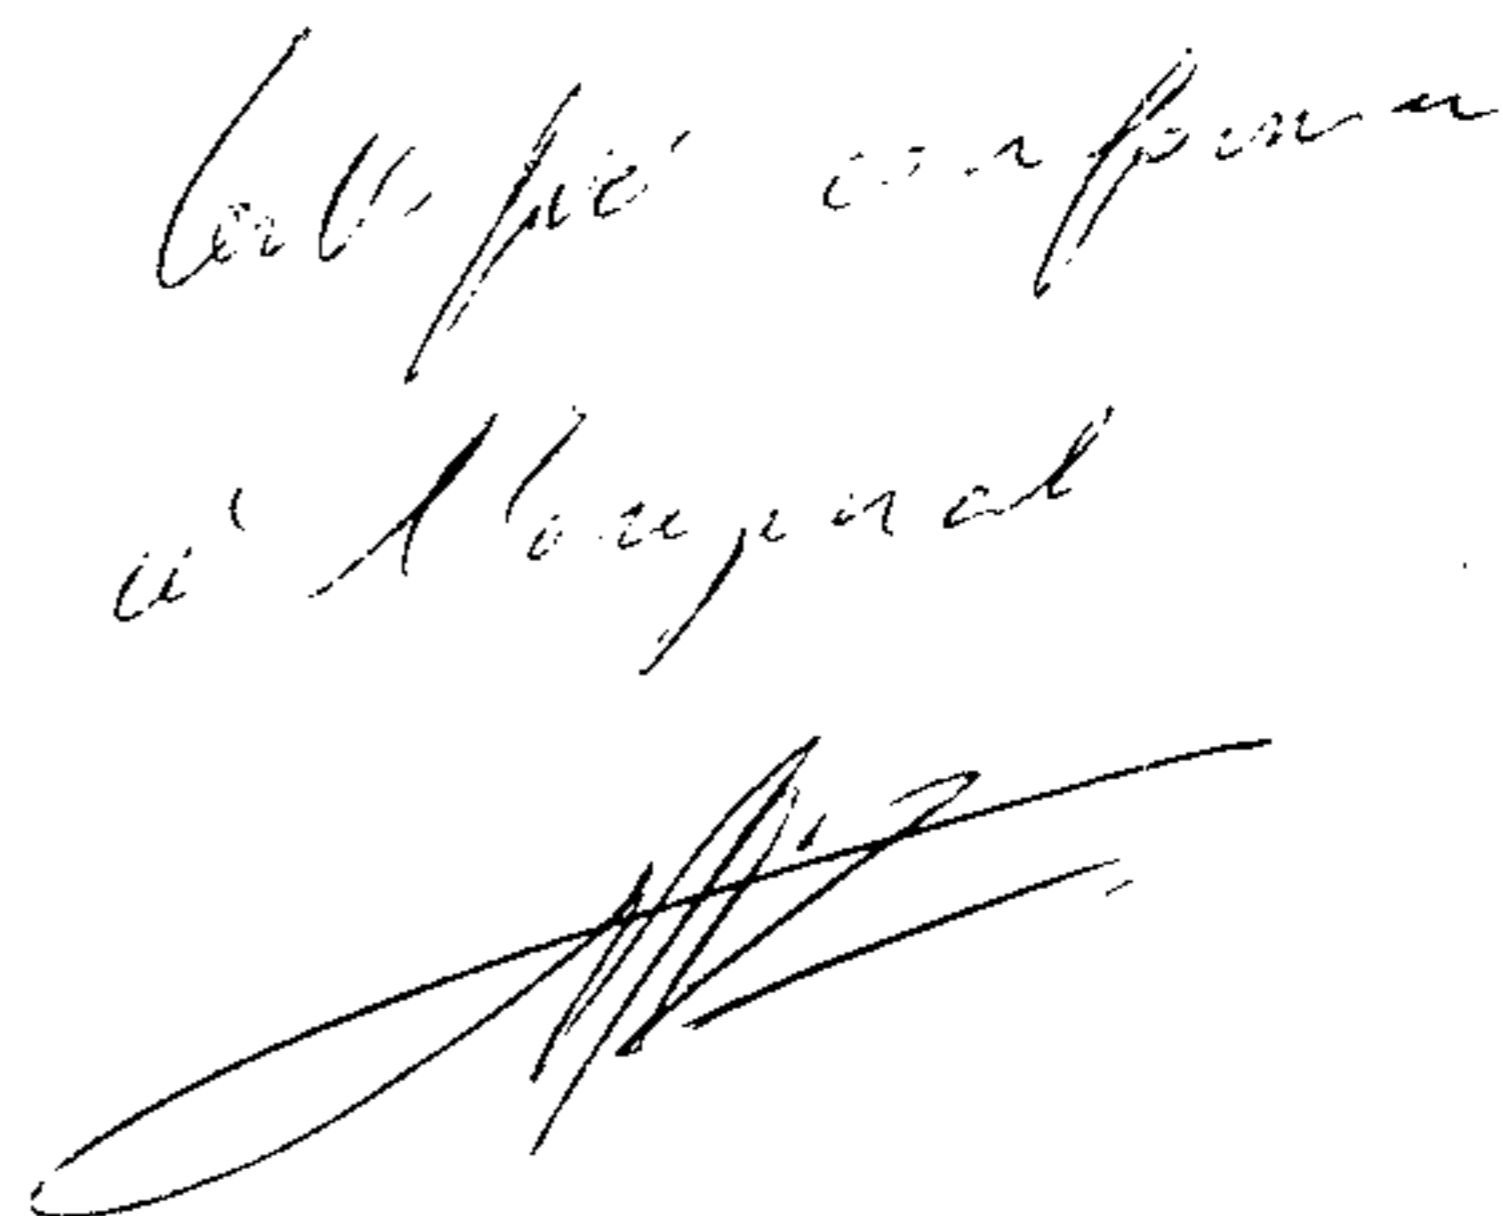 Certifié conforme
à l'original